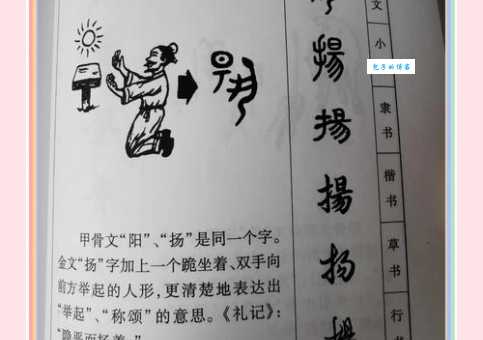 甲骨文“阳”、“扬”是同一个字。
金文“扬”字加上一个跪坐着、双手向
前方举起的人形，更清楚地表达出
“举起”、“称颂”的意思。《礼记》：
“隐恶而扬善。”
揚
揚
揚
扬
文
小
隶
书
楷
书
草
书
行